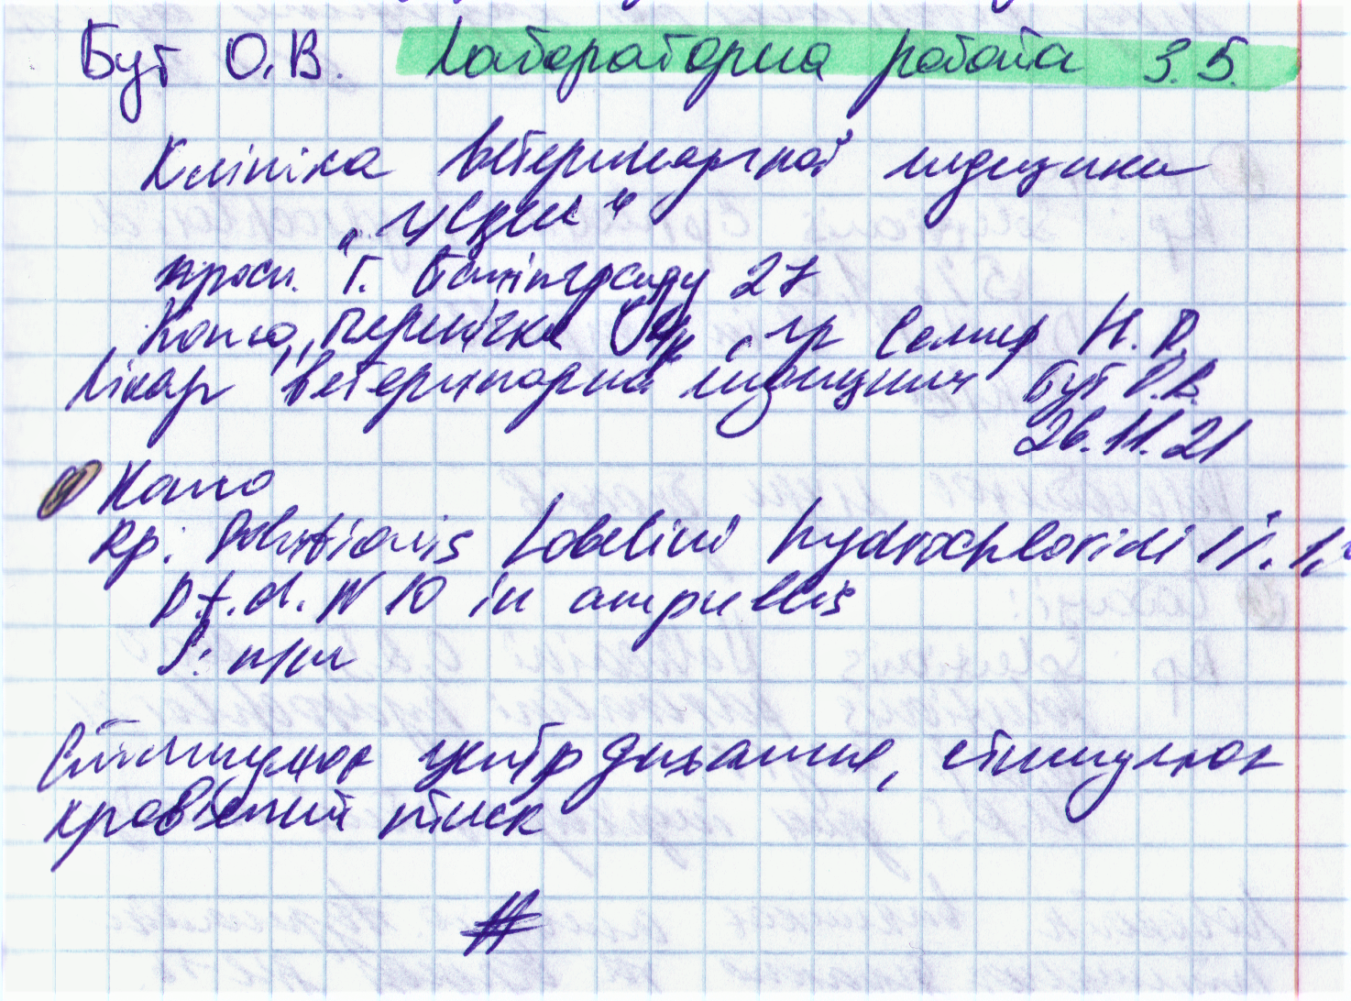 Бут О.В. Лабораторна робота 3.5.
Клініка ветеринарної медицини
просп. Г. Сталінграду 27
Лікар ветеринарної медицини Бут О.В.
26.11.21
Rp: Solutionis Lobelini hydrochloridi 1% 1,
D.t.d. N 10 in ampullis
S: п/ш
Стимулює центр дихання, стимулює
кров'яний тиск